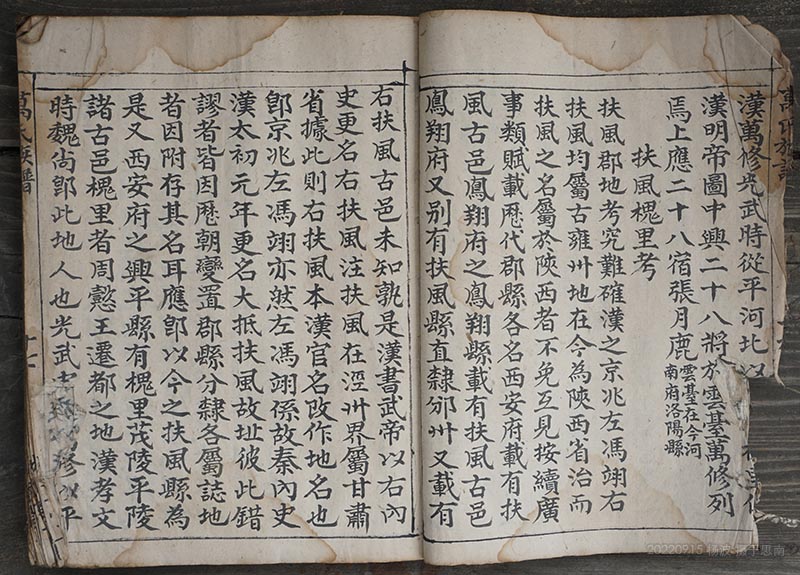 漢萬修光武時從平河北以
漢明帝圖中興二十八將於雲臺萬修列
焉上應二十八宿張月鹿雲臺在今河南府洛陽縣
扶風槐里考
扶風郡地考究難確漢之京兆左馮翊右
扶風均屬古雍州地在今為陝西省治而
扶風之名屬於陝西者不免互見按續廣
事類賦載歷代郡縣各名西安府載有扶
風古邑鳳翔府之鳳翔縣載有扶風古邑
鳳翔府又別有扶風縣直隸邠州又載有
右扶風古邑未知孰是漢書武帝以右內
史更名右扶風注扶風在涇州界屬甘肅
省據此則右扶風本漢官名改作地名也
卽京兆左馮翊亦然左馮翊係故秦內史
漢太初元年更名大抵扶風故址彼此錯
謬者皆因歷朝變置郡縣分隸各屬誌地
者因附存其名耳應卽以今之扶風縣為
是又西安府之興平縣有槐里茂陵平陵
諸古邑槐里者周懿王遷都之地漢孝文
時魏尙卽此地人也光武 修以平
萬氏族譜
20220915 楊波 攝于思南